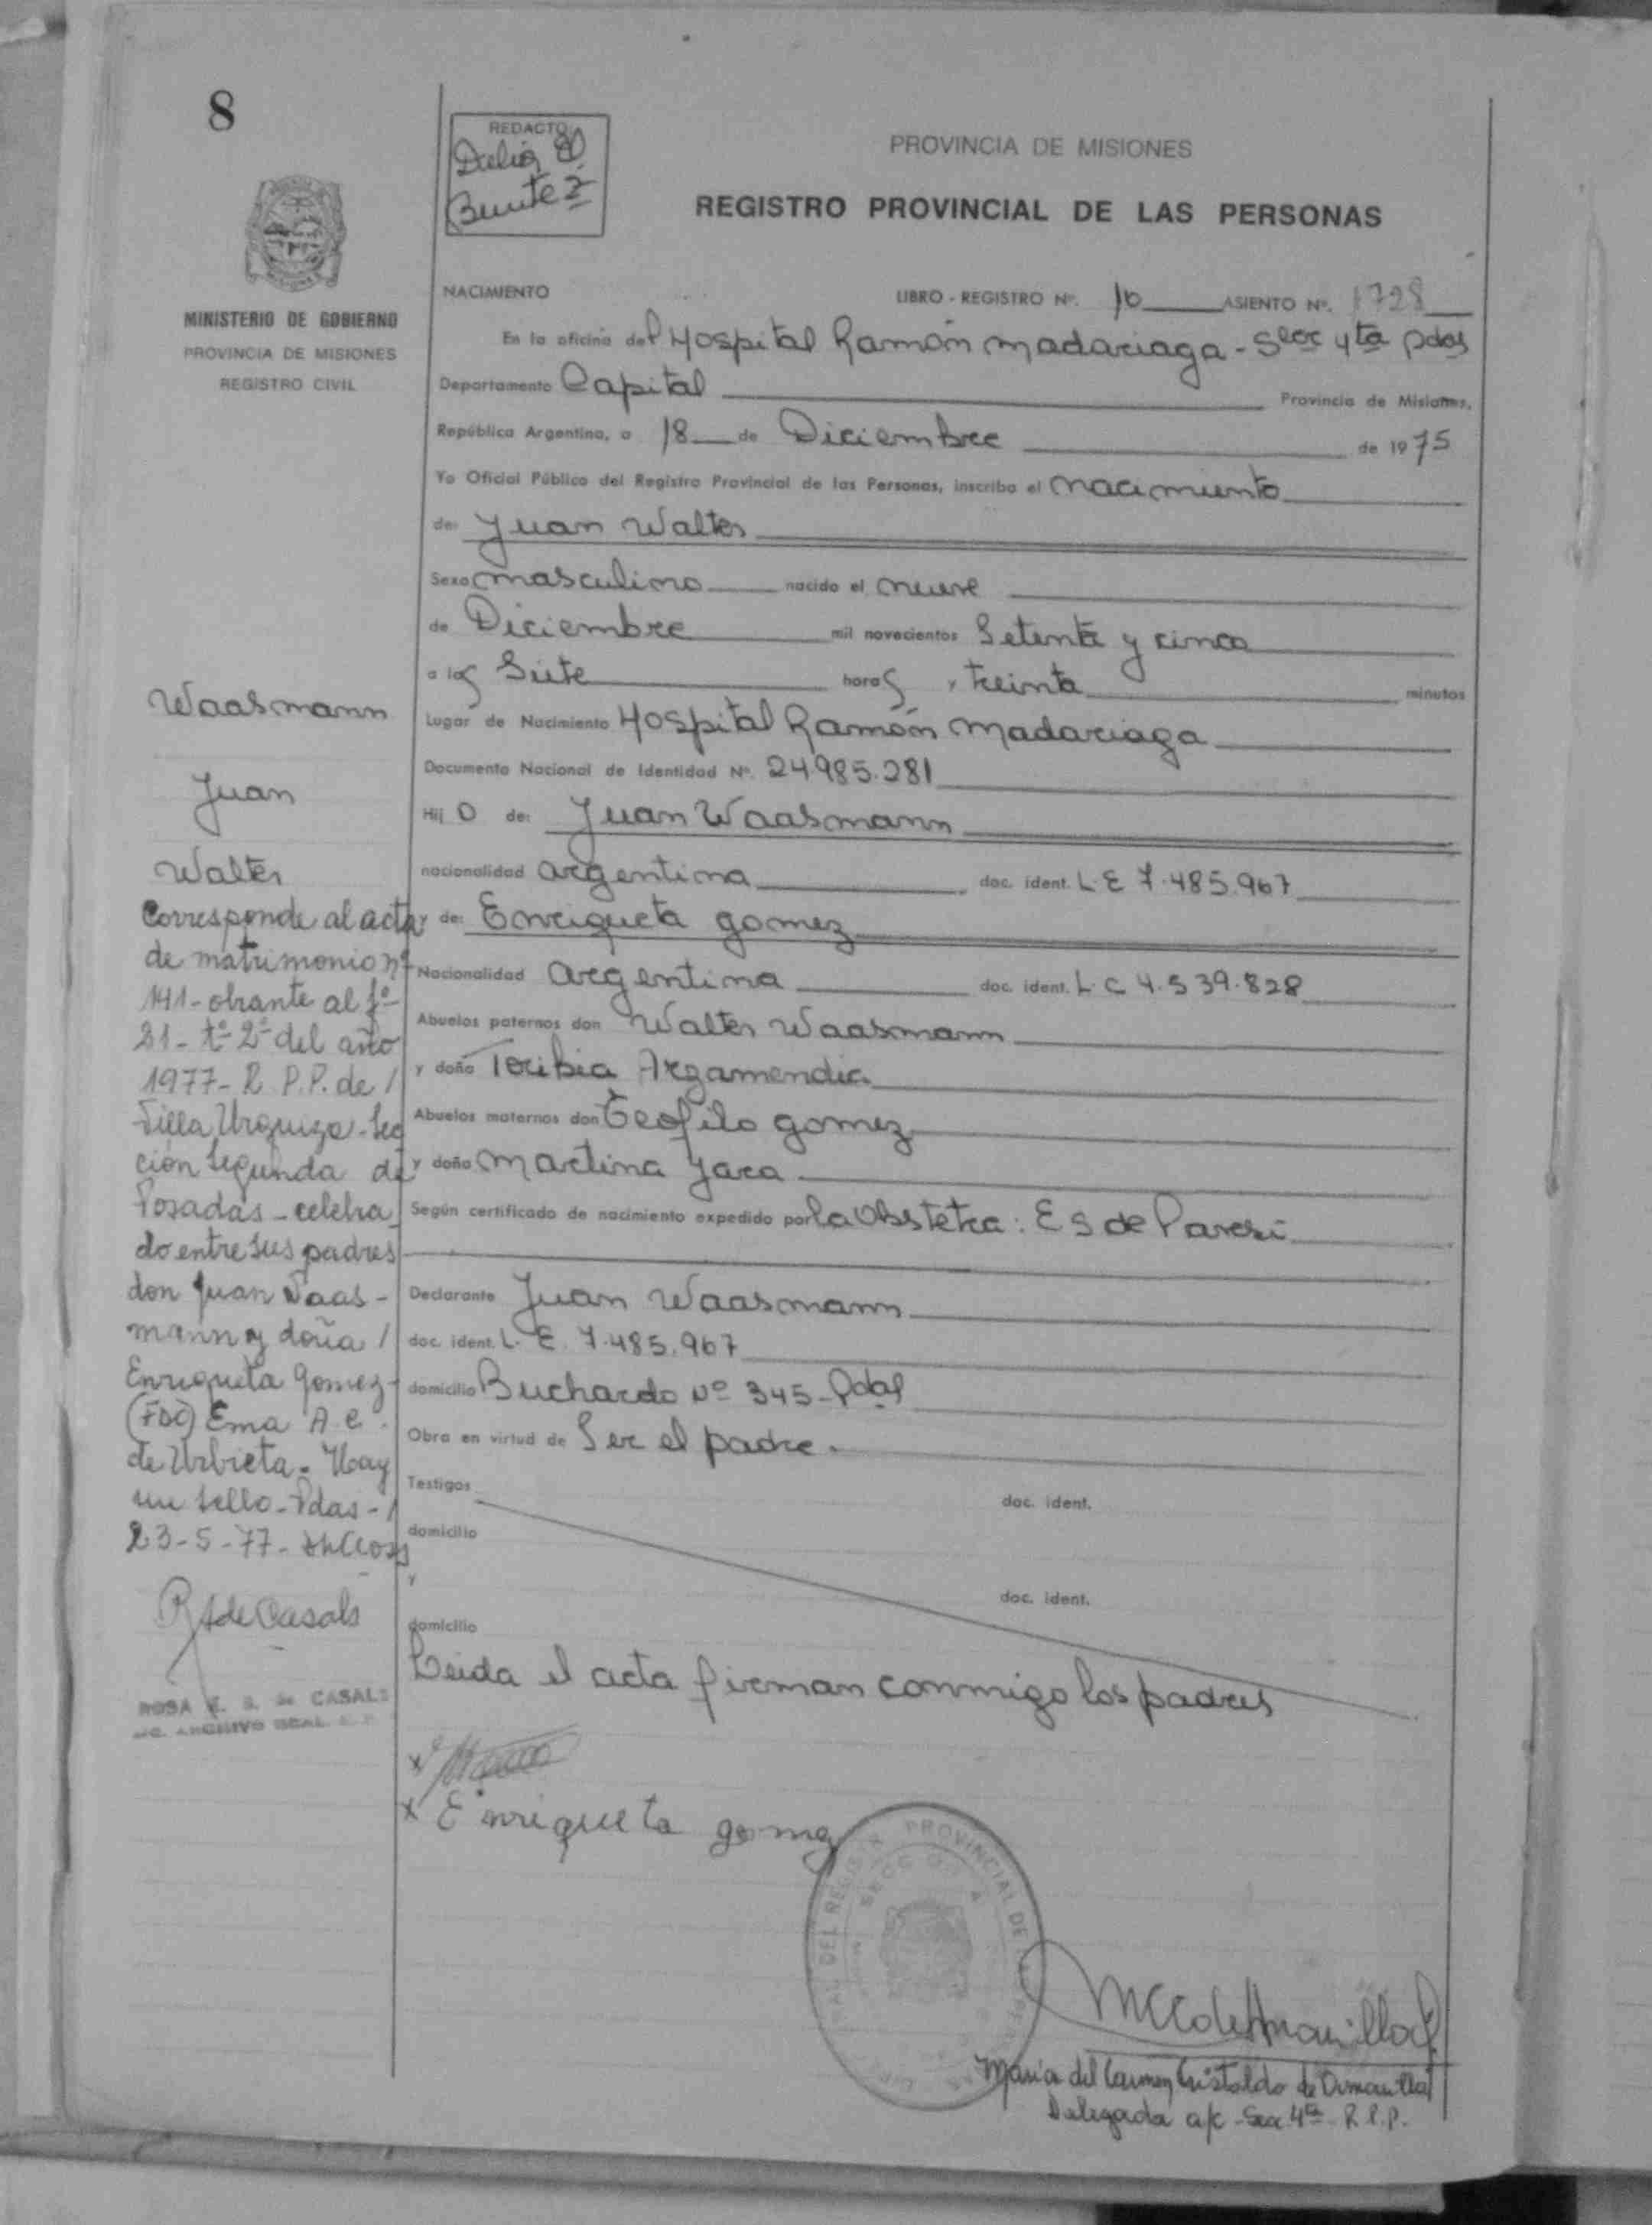 8
REDACTO
Dalia
Benitez
PROVINCIA DE MISIONES
REGISTRO PROVINCIAL DE LAS PERSONAS
MINISTERIO DE GOBIERNO
PROVINCIA DE MISIONES
REGISTRO CIVIL
NACIMIENTO
LIBRO - REGISTRO Nº. 10 ASIENTO Nº. 1728
En la oficina del Hospital Ramón Madariaga - Secc 4ta Pdas
Departamento Capital Provincia de Misiones,
República Argentina, a 18 de Diciembre de 1975
Yo Oficial Público del Registro Provincial de las Personas, inscribo el nacimiento
de: Juan Walter
Sexo masculino nacido el nueve
de Diciembre mil novecientos Setenta y cinco
a las Siete horas y treinta minutos
Lugar de Nacimiento Hospital Ramón Madariaga
Documento Nacional de Identidad Nº. 24.985.281
Hij o de: Juan Waasmann
nacionalidad argentina doc. ident. L.E 7.485.967
y de: Enriqueta gomez
Nacionalidad argentina doc. ident. L.C 4.539.828
Abuelos paternos don Walter Waasmann
y doña Toribia Argamendia
Abuelos maternos don Teofilo gomez
y doña Martina Jara
Según certificado de nacimiento expedido por la Obstetra: E S de
Declarante Juan Waasmann
doc. ident. L. E. 7.485.967
domicilio Buchardo Nº 345 - Pdas
Obra en virtud de Ser el padre.
Testigos doc. ident.
domicilio
y doc. ident.
domicilio
Leida el acta firman conmigo los padres
x
x Enriqueta gomez
Waasmann
Juan
Walter
Corresponde al acta
de matrimonio nº
141 - obrante al fº
21 - tº 2º del año
1977 - R P.P. de /
Villa Urquiza - Sec
ción Segunda de
Posadas - celebra
do entre sus padres
don Juan Waas -
mann y doña /
Enriqueta Gomez -
(FDO) Ema A C.
de Urbieta. Hay
un sello - Pdas - /
23 - 5 - 77 -
R S de Casals
ROSA E. S. de CASALS
ARCHIVO GRAL.
PROVINCIAL DE
DEL REGISTRO
Maria del Carmen Cristaldo de
Delegada a/c - Sec 4ª - R.P.P.